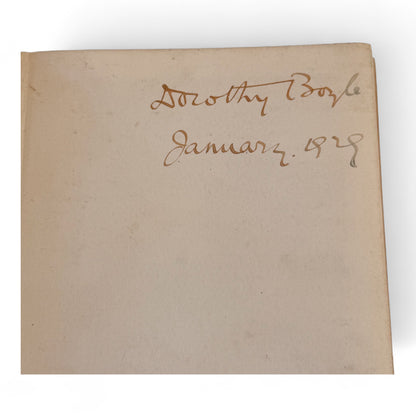 Dorothy Boyle
January. 1929